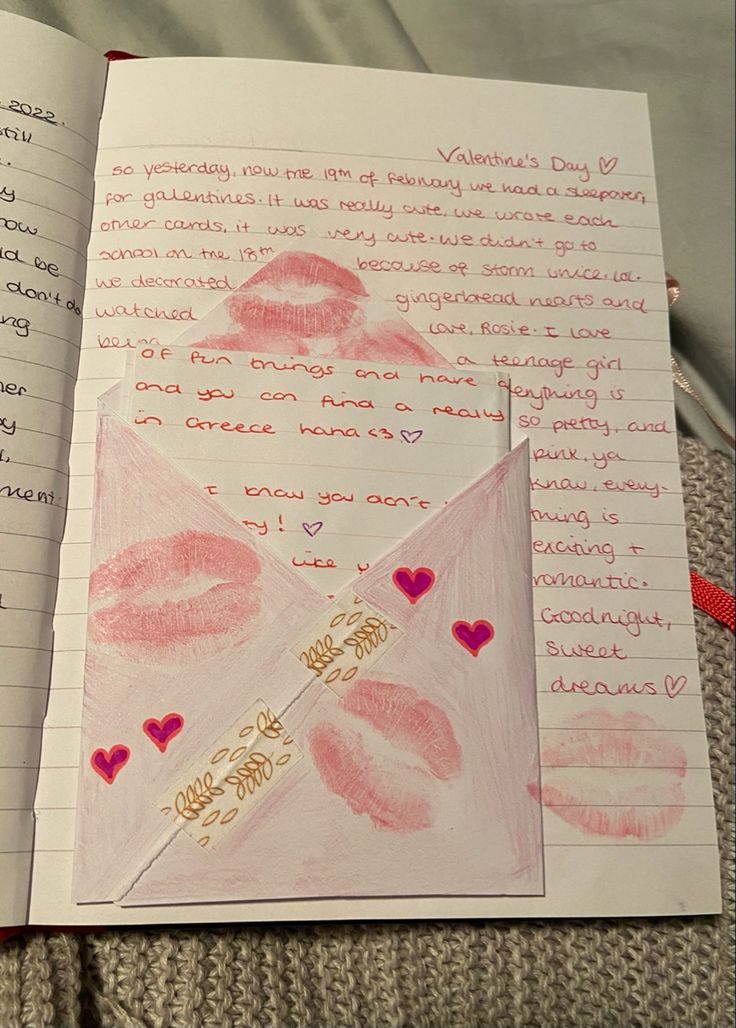 2022.
still
.
y
now
ld be
don't do
ng
her
by
ment.
Valentine's Day ♡
so yesterday, now the 19th of February we had a sleepover,
for galentines. It was really cute, we wrote each
other cards, it was very cute. we didn't go to
school on the 18th because of storm unice, lol.
we decorated gingerbread hearts and
watched Love, Rosie. I love
being a teenage girl
everything is
so pretty, and
pink, ya
know, every-
thing is
exciting +
romantic.
Goodnight,
sweet
dreams ♡
of fun things and have
and you can find a really
in Greece haha <3 ♡
I know you don't
ty! ♡
like y